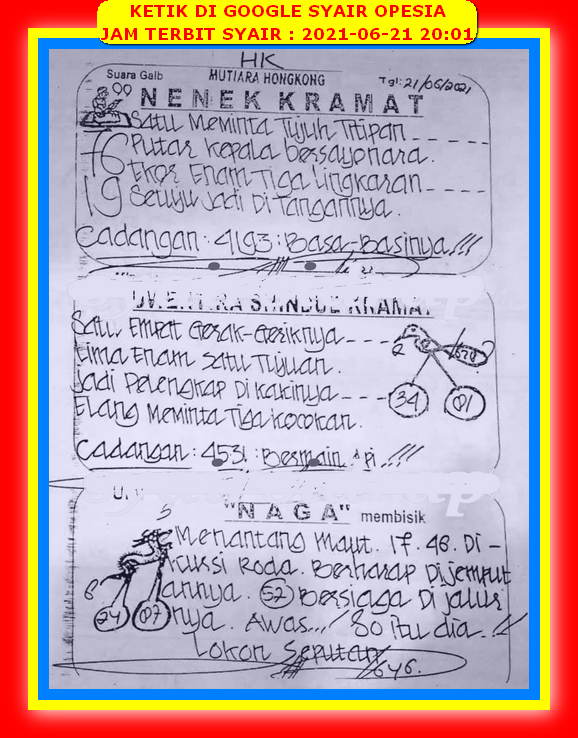 KETIK DI GOOGLE SYAIR OPESIA
JAM TERBIT SYAIR : 2021-06-21 20:01
HK
Suara Gaib MUTIARA HONGKONG Tgl: 21/06/2021
NENEK KRAMAT
Satu Meminta Tujuh Titipan
76 Putar Kepala bersayonara.
Ekor Enam Tiga Lingkaran
19 Setuju Jadi Di Tangannya.
Cadangan : 4193 : Basa-Basinya !!!
KRAMAT
Satu Empat Gerak-Geriknya
Lima Enam Satu Tujuan.
Jadi Pelengkap Di Kakinya
2
34 01
Elang Meminta Tiga Kocokan.
Cadangan : 453! : Bermain Api !!!
5
"NAGA" membisik
Menantang Maut. 17. 46. Di -
Kursi Roda. Berharap Dijemput
6
annya. 52 Bersiaga Di Jalur
24 07 nya. Awas...! 80 itu dia. !!
Lokon Seputan 646.